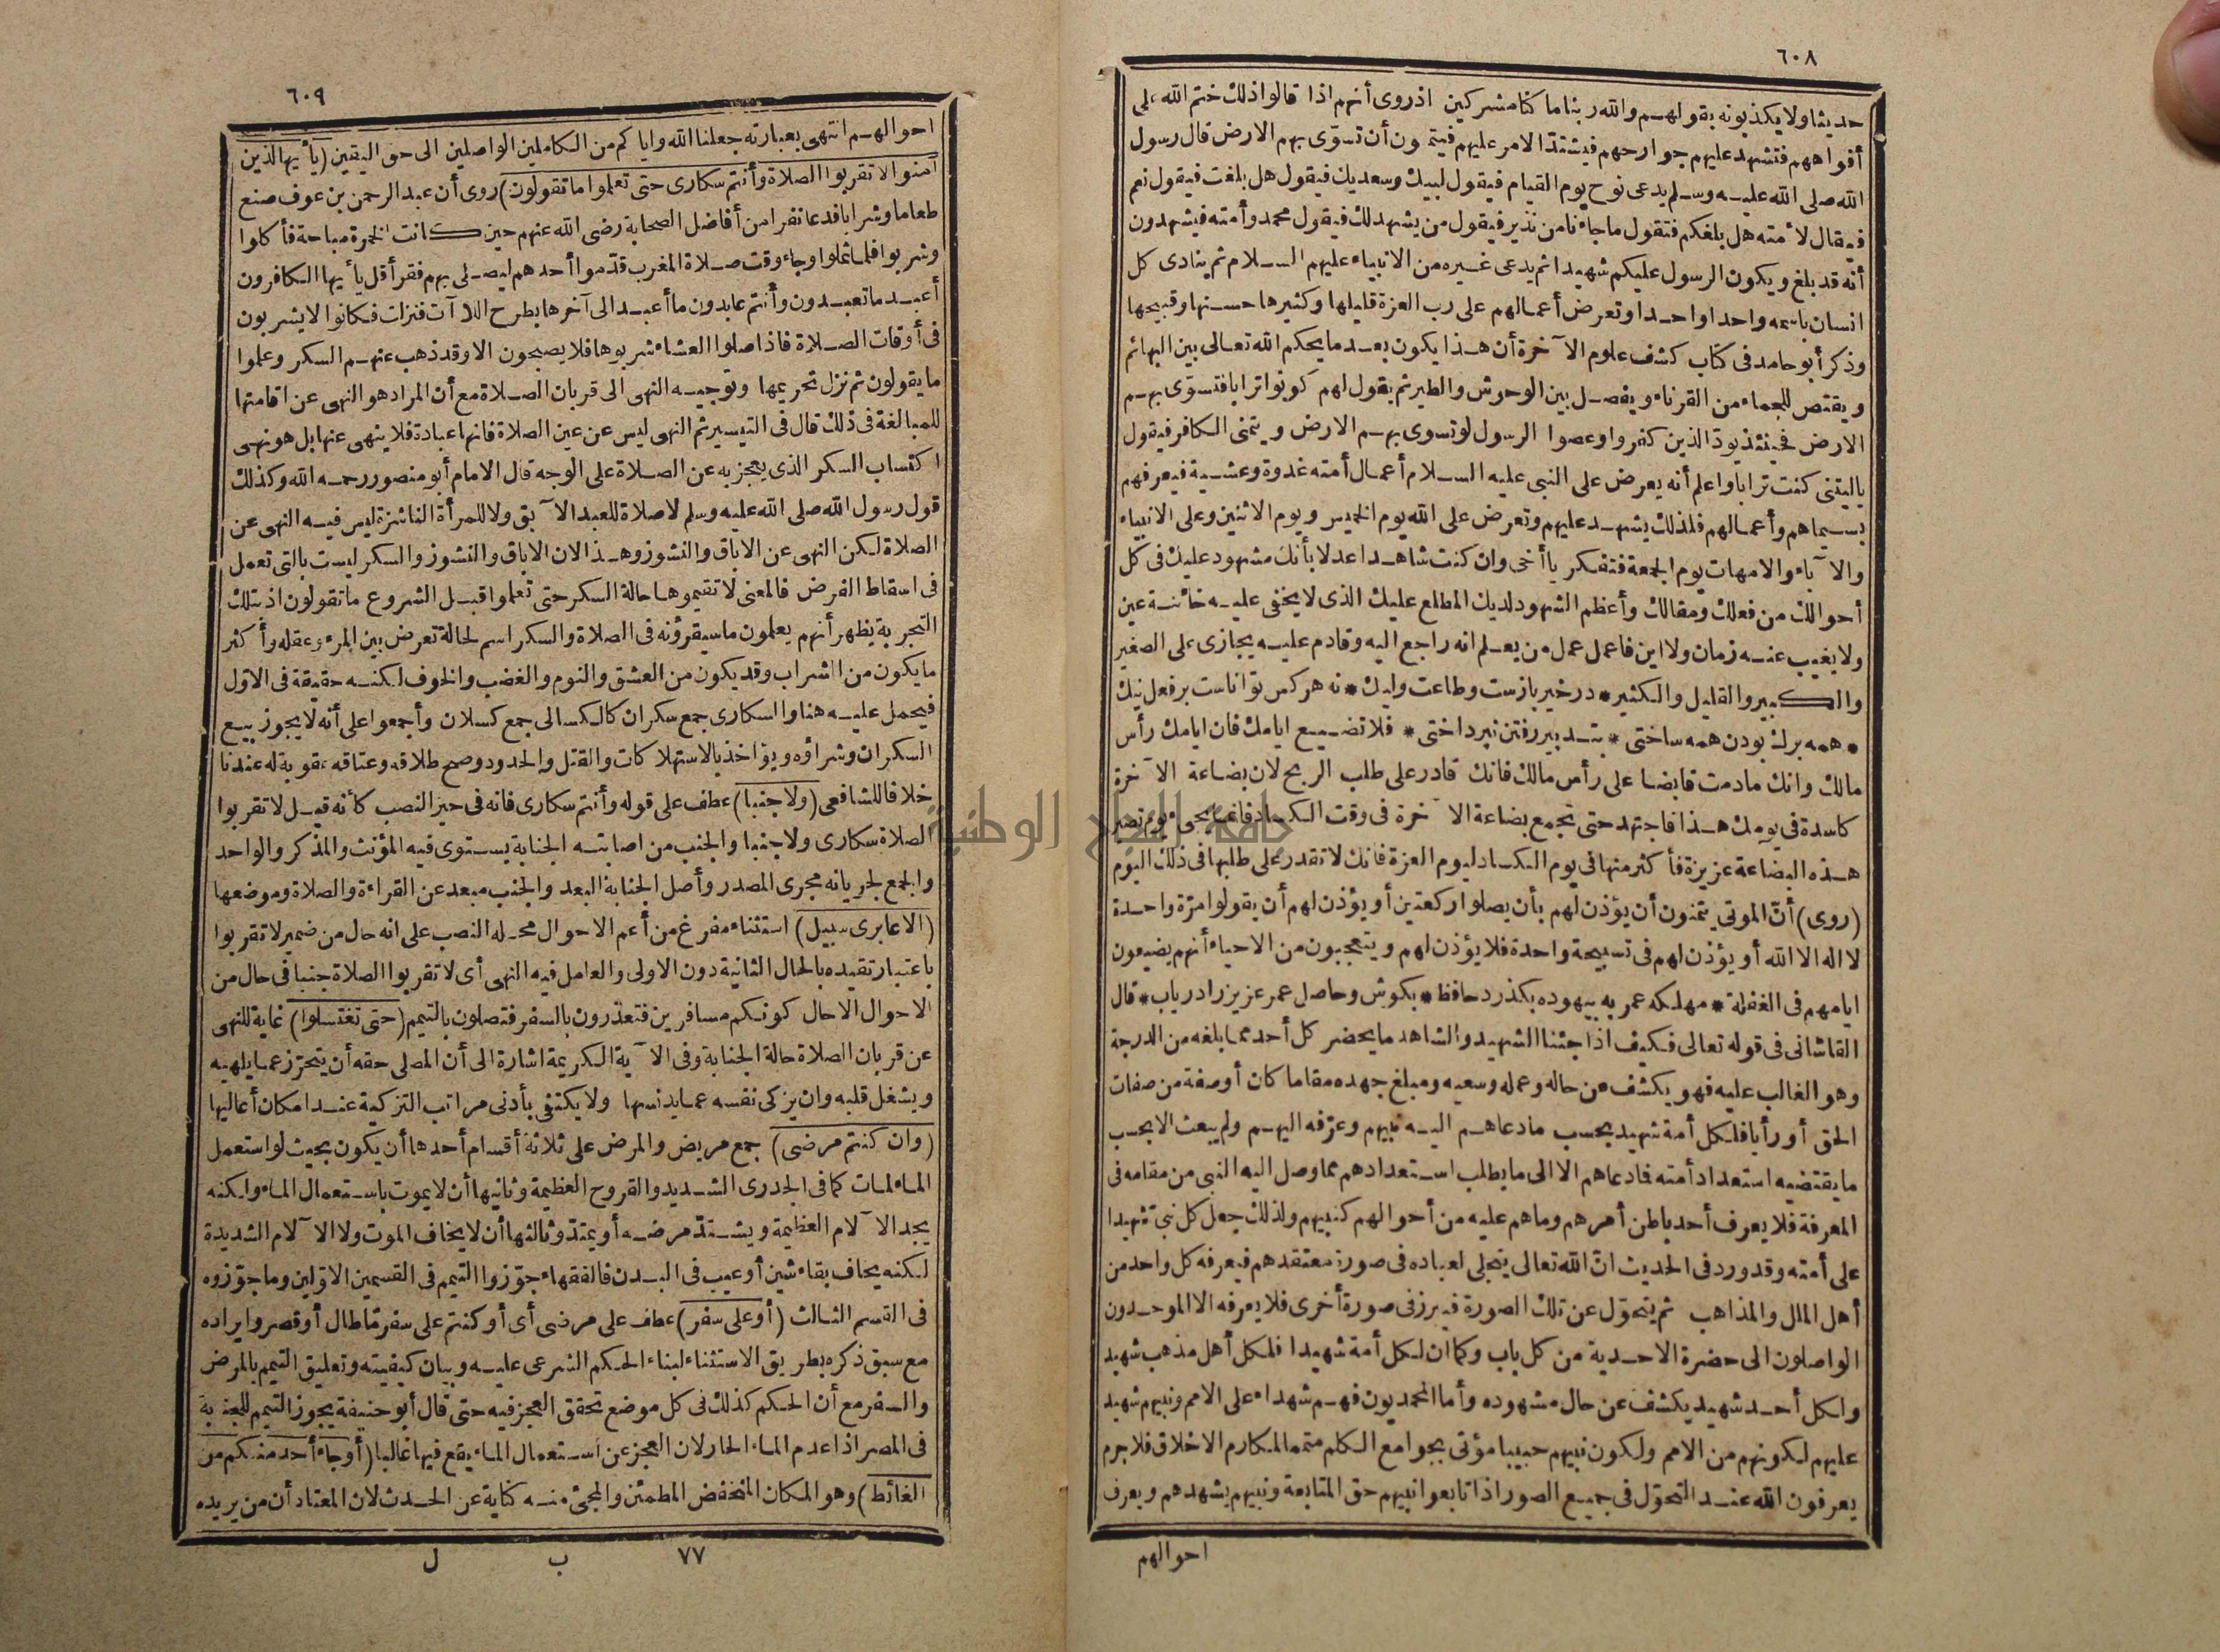 ٦٠٨
حديثا ولا يكذبونه بقولهم والله ربنا ما كنا مشركين اذ روى أنهم اذا قالوا ذلك ختم الله على
أفواههم فتشهد عليهم جوارحهم فيشتد الامر عليهم فيتمنون أن تسوّى بهم الارض قال رسول
الله صلى الله عليه وسلم يدعى نوح يوم القيام فيقول لبيك وسعديك فيقول هل بلغت فيقول نعم
فيقال لأمته هل بلغكم فتقول ما جاءنا من نذير فيقول من يشهد لك فيقول محمد وأمته فيشهدون
أنه قد بلغ ويكون الرسول عليكم شهيدا ثم يدعى غيره من الانبياء عليهم السلام ثم ينادى كل
انسان باسمه واحدا واحدا وتعرض أعمالهم على رب العزة قليلها وكثيرها حسنها وقبيحها
وذكر أبو حامد فى كتاب كشف علوم الآخرة أن هذا يكون بعد ما يحكم الله تعالى بين البهائم
ويقتص للجماء من القرناء ويفصل بين الوحوش والطير ثم يقول لهم كونوا ترابا فتسوّى بهم
الارض فحينئذ يودّ الذين كفروا وعصوا الرسول لو تسوى بهم الارض ويتمنى الكافر فيقول
ياليتنى كنت ترابا واعلم أنه يعرض على النبى عليه السلام أعمال أمته غدوة وعشية فيعرفهم
بسيماهم وأعمالهم فلذلك يشهد عليهم وتعرض على الله يوم الخميس ويوم الاثنين وعلى الانبياء
والآباء والامهات يوم الجمعة فتفكر يا أخى وان كنت شاهدا عدلا بأنك مشهود عليك فى كل
أحوالك من فعلك ومقالك وأعظم الشهود لديك المطلع عليك الذى لا يخفى عليه خائنة عين
ولا يغيب عنه زمان ولا اين فاعمل عمل من يعلم انه راجع اليه وقادم عليه يجازى على الصغير
والكبير والقليل والكثير * درخير بازست وطاعت وليك * نه هر كس تواناست بر فعل نيك
* همه برك بودن همه ساختى * بتدبير رفتن نپرداختى * فلا تضيع ايامك فان ايامك رأس
مالك وانك مادمت قابضا على رأس مالك فانك قادر على طلب الربح لان بضاعة الآخرة
كاسدة فى يومك هذا فاجتهد حتى تجمع بضاعة الآخرة فى وقت الكساد فانما يجىء يوم تصير
هذه البضاعة عزيزة فأكثر منها فى يوم الكساد ليوم العزة فانك لا تقدر على طلبها فى ذلك اليوم
(روى) أنّ الموتى يتمنون أن يؤذن لهم بأن يصلوا ركعتين أو يؤذن لهم أن يقولوا مرّة واحدة
لا اله الا الله أو يؤذن لهم فى تسبيحة واحدة فلا يؤذن لهم ويتعجبون من الاحياء أنهم يضيعون
ايامهم فى الغفلة * مهل كه عمر به بيهوده بكذرد حافظ * بكوش وحاصل عمر عزيز را درياب * قال
القاشانى فى قوله تعالى فكيف اذا جئنا الشهيد والشاهد ما يحضر كل أحد مما بلغه من الدرجة
وهو الغالب عليه فهو يكشف عن حاله وعمله وسعيه ومبلغ جهده مقاما كان أو صفة من صفات
الحق أو رأيا فلكل أمة شهيد بحسب ما دعاهم اليه نبيهم وعرّفه اليهم ولم يبعث الا بحسب
ما يقتضيه استعداد أمته فادعاهم الا الى ما يطلب استعدادهم مما وصل اليه النبى من مقامه فى
المعرفة فلا يعرف أحد باطن أمرهم وما هم عليه من أحوالهم كنبيهم ولذلك جعل كل نبىّ شهيدا
على أمته وقد ورد فى الحديث انّ الله تعالى يتجلى لعباده فى صورة معتقدهم فيعرفه كل واحد من
أهل الملل والمذاهب ثم يتحوّل عن تلك الصورة فيبرز فى صورة أخرى فلا يعرفه الا الموحدون
الواصلون الى حضرة الاحدية من كل باب وكما ان لكل أمة شهيدا فلكل أهل مذهب شهيد
ولكل أحد شهيد يكشف عن حال مشهوده وأما المحمديون فهم شهداء على الامم ونبيهم شهيد
عليهم لكونهم من الامم ولكون نبيهم حبيبا مؤتى بجوامع الكلم متمما لمكارم الاخلاق فلا جرم
يعرفون الله عند التحوّل فى جميع الصور اذا تابعوا نبيهم حق المتابعة ونبيهم يشهدهم ويعرف
احوالهم
٦٠٩
احوالهم انتهى بعبارته جعلنا الله واياكم من الكاملين الواصلين الى حق اليقين (يا أيها الذين
آمنوا لا تقربوا الصلاة وأنتم سكارى حتى تعلموا ما تقولون) روى أن عبد الرحمن بن عوف صنع
طعاما وشرابا فدعا نفرا من أفاضل الصحابة رضى الله عنهم حين كانت الخمرة مباحة فأكلوا
وشربوا فلما ثملوا وجاء وقت صلاة المغرب قدّموا أحدهم ليصلى بهم فقرأ قل يا أيها الكافرون
أعبد ما تعبدون وأنتم عابدون ما أعبد الى آخرها بطرح اللاآت فنزلت فكانوا لا يشربون
فى أوقات الصلاة فاذا صلوا العشاء شربوها فلا يصبحون الا وقد ذهب عنهم السكر وعلموا
ما يقولون ثم نزل تحريمها وتوجيه النهى الى قربان الصلاة مع أن المراد هو النهى عن اقامتها
للمبالغة فى ذلك قال فى التيسير ثم النهى ليس عن عين الصلاة فانها عبادة فلا ينهى عنها بل هو نهى
اكتساب السكر الذى يعجز به عن الصلاة على الوجه قال الامام أبو منصور رحمه الله وكذلك
قول رسول الله صلى الله عليه وسلم لا صلاة للعبد الآبق ولا للمرأة الناشزة ليس فيه النهى عن
الصلاة لكن النهى عن الاباق والنشوز وهذا لان الاباق والنشوز والسكر ليست بالتى تعمل
فى اسقاط الفرض فالمعنى لا تقيموها حالة السكر حتى تعلموا قبل الشروع ما تقولون اذ بتلك
التجربة يظهر أنهم يعلمون ما سيقرؤنه فى الصلاة والسكر اسم لحالة تعرض بين المرء وعقله وأكثر
ما يكون من الشراب وقد يكون من العشق والنوم والغضب والخوف لكنه حقيقة فى الاوّل
فيحمل عليه هنا والسكارى جمع سكران كالكسالى جمع كسلان وأجمعوا على أنه لا يجوز بيع
السكران وشراؤه ويؤاخذ بالاستهلاكات والقتل والحدود وصح طلاقه وعتاقه عقوبة له عندنا
خلافا للشافعى (ولا جنبا) عطف على قوله وأنتم سكارى فانه فى حيز النصب كأنه قيل لا تقربوا
الصلاة سكارى ولا جنبا والجنب من اصابته الجنابة يستوى فيه المؤنث والمذكر والواحد
والجمع لجريانه مجرى المصدر وأصل الجنابة البعد والجنب مبعد عن القراءة والصلاة وموضعها
(الا عابرى سبيل) استثناء مفرغ من أعم الاحوال محله النصب على انه حال من ضمير لا تقربوا
باعتبار تقيده بالحال الثانية دون الاولى والعامل فيه النهى أى لا تقربوا الصلاة جنبا فى حال من
الاحوال الا حال كونكم مسافرين فتعذرون بالسفر فتصلون بالتيمم (حتى تغتسلوا) غاية للنهى
عن قربان الصلاة حالة الجنابة وفى الآية الكريمة اشارة الى أن المصلى حقه أن يتحرّز عما يلهيه
ويشغل قلبه وان يزكى نفسه عما يدنسها ولا يكتفى بأدنى مراتب التزكية عند امكان أعاليها
(وان كنتم مرضى) جمع مريض والمرض على ثلاثة أقسام أحدها أن يكون بحيث لو استعمل
الماء لمات كما فى الجدرى الشديد والقروح العظيمة وثانيها أن لا يموت باستعمال الماء ولكنه
يجد الآلام العظيمة ويشتدّ مرضه أو يمتدّ وثالثها أن لا يخاف الموت ولا الآلام الشديدة
لكنه يخاف بقاء شين أو عيب فى البدن فالفقهاء جوّزوا التيمم فى القسمين الاوّلين وما جوّزوه
فى القسم الثالث (أو على سفر) عطف على مرضى أى أو كنتم على سفر مّا طال أو قصر وايراده
مع سبق ذكره بطريق الاستثناء لبناء الحكم الشرعى عليه وبيان كيفيته وتعليق التيمم بالمرض
والسفر مع أن الحكم كذلك فى كل موضع تحقق العجز فيه حتى قال أبو حنيفة يجوز التيمم للجنابة
فى المصر اذا عدم الماء الحار لان العجز عن استعمال الماء يقع فيها غالبا (أو جاء أحد منكم من
الغائط) وهو المكان المنخفض المطمئن والمجىء منه كناية عن الحدث لان المعتاد أن من يريده
٧٧ ب ل
جامعة النجاح الوطنية